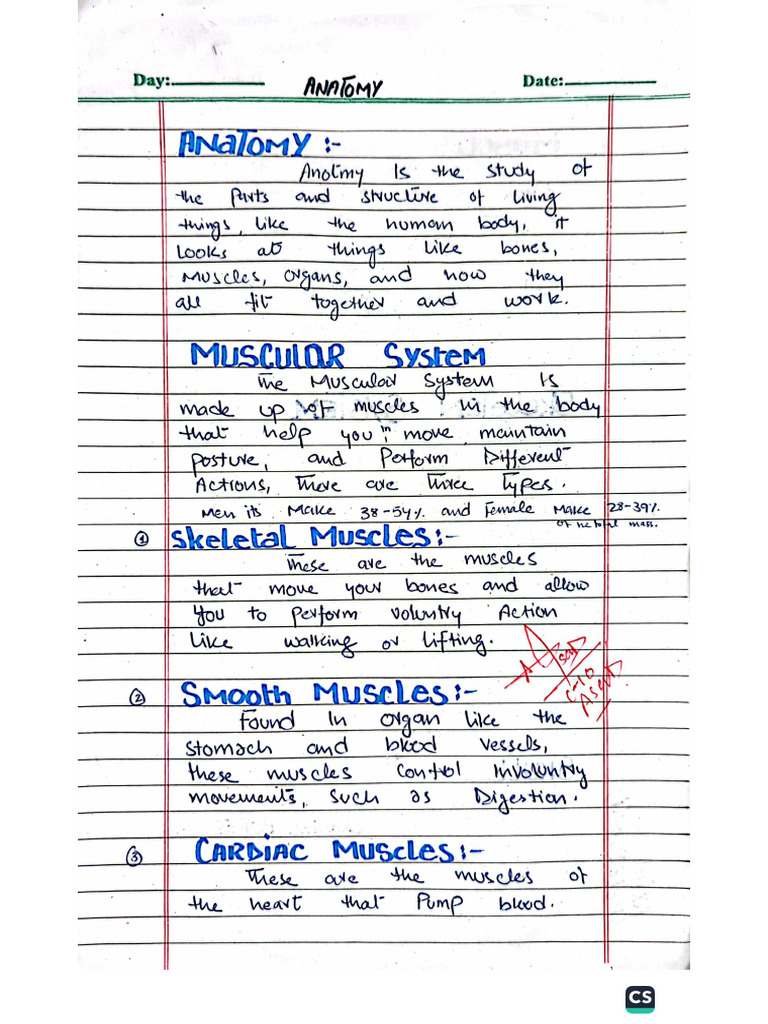 Day: ANATOMY Date:
ANATOMY :-
Anotmy Is the study of
the Parts and structure of living
things, like the human body, it
Looks at things like bones,
Muscles, organs, and how they
all fit together and work.
MUSCULAR System
The Muscular System Is
made up of muscles in the body
that help you in move, maintain
posture, and Perform Different
Actions, There are Three Types.
Men its Make 38-54% and Female Make 28-39%
of netotal mass.
① Skeletal Muscles:-
These are the muscles
that move your bones and allow
You to perform voluntry Action
Like walking or lifting.
② Smooth Muscles:-
Found In organ like the
stomach and blood vessels,
these muscles control involuntry
movements, such as Digestion.
③ CARDIAC Muscles:-
These are the muscles of
the heart that Pump blood.
CS